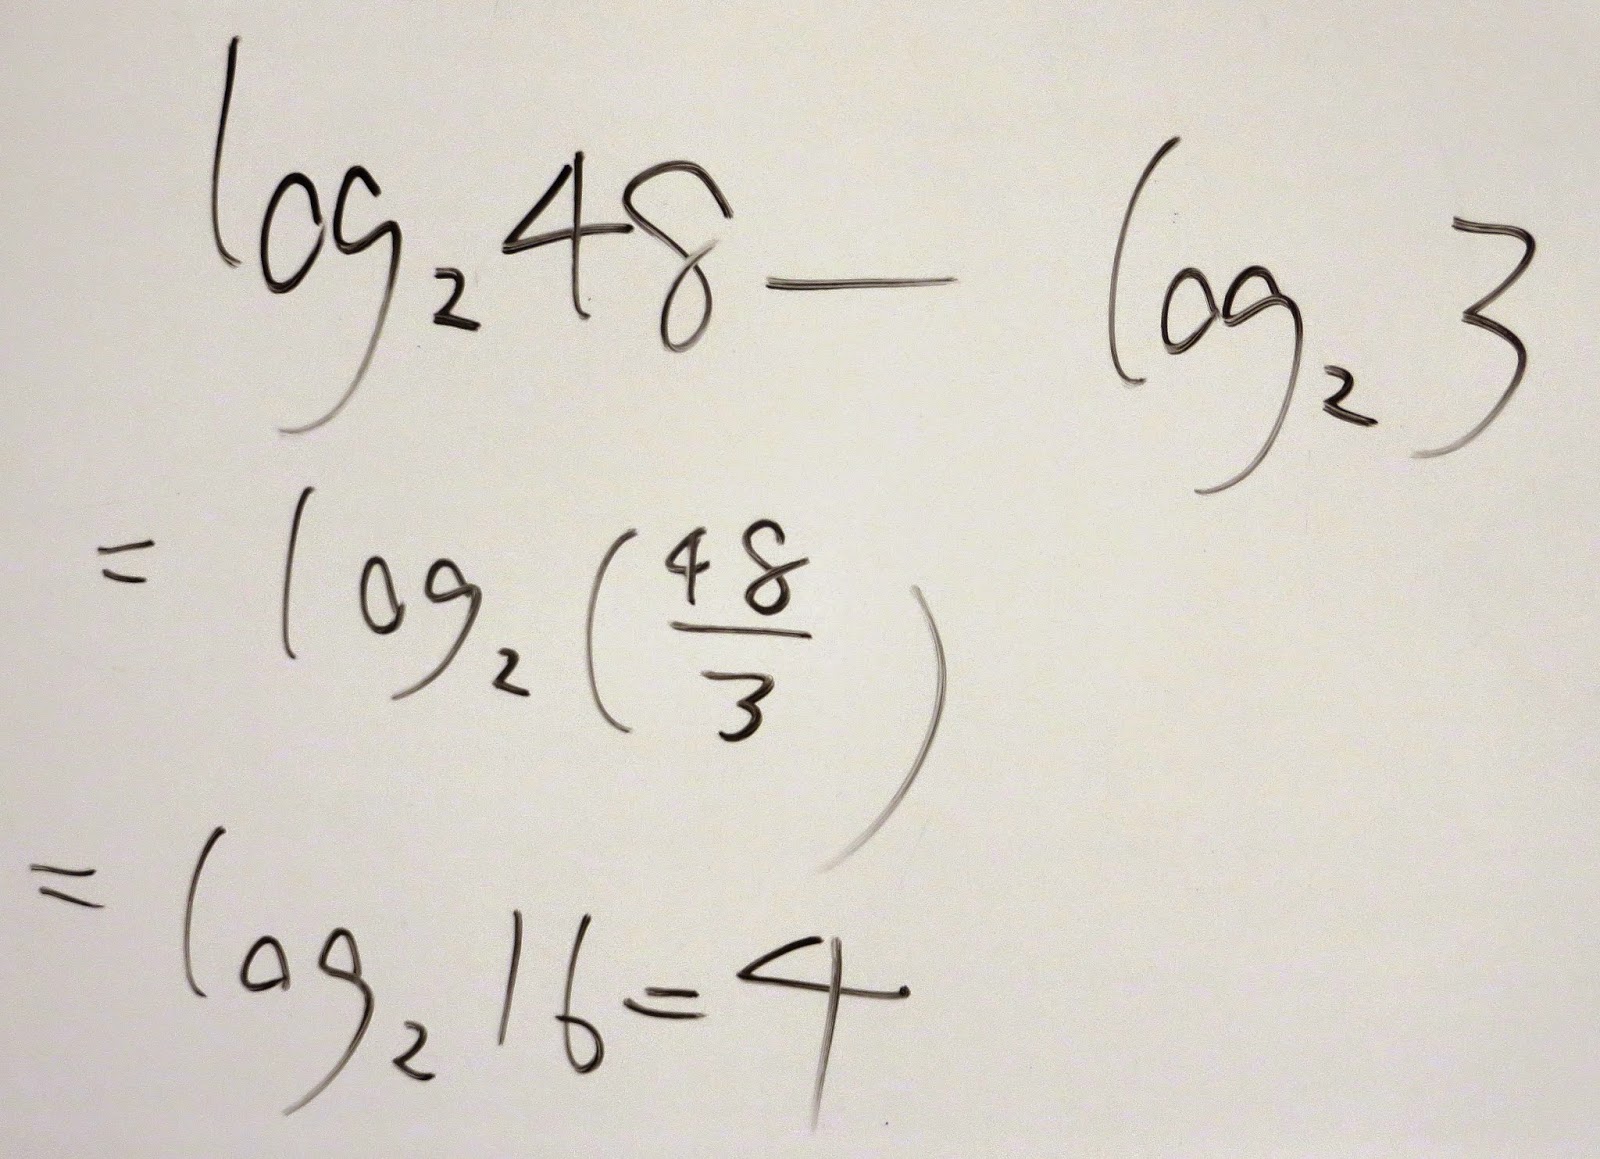 log₂ 48 — log₂ 3
= log₂ (48/3)
= log₂ 16 = 4